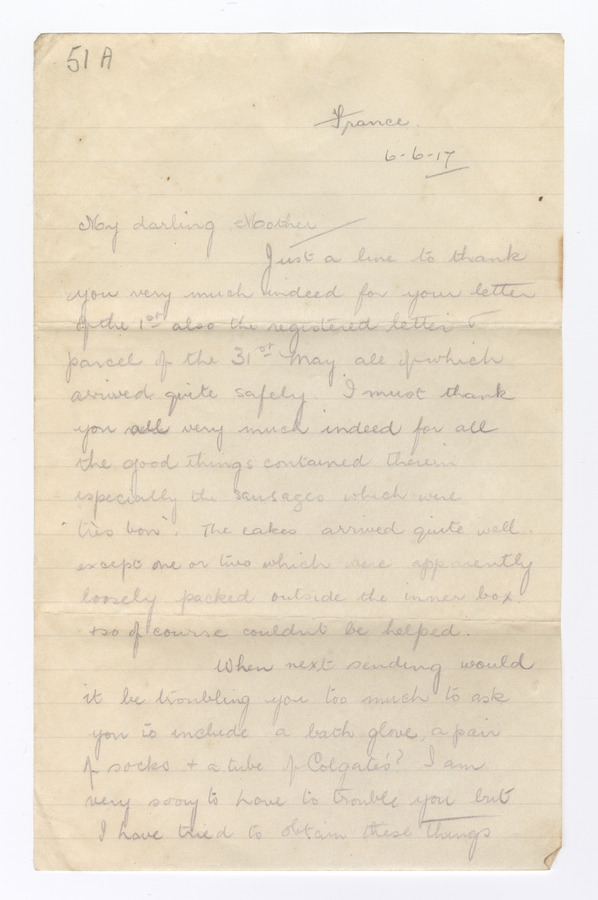 51 A
France
6-6-17
My darling Mother
Just a line to thank
you very much indeed for your letter
of the 1st also the registered letter &
parcel of the 31st May all of which
arrived quite safely. I must thank
you all very much indeed for all
the good things contained therein
especially the sausages which were
"très bon". The cakes arrived quite well
except one or two which were apparently
loosely packed outside the inner box.
& so of course couldn't be helped.
When next sending would
it be troubling you too much to ask
you to include a bath glove, a pair
of socks + a tube of Colgates? I am
very sorry to have to trouble you but
I have tried to obtain these things